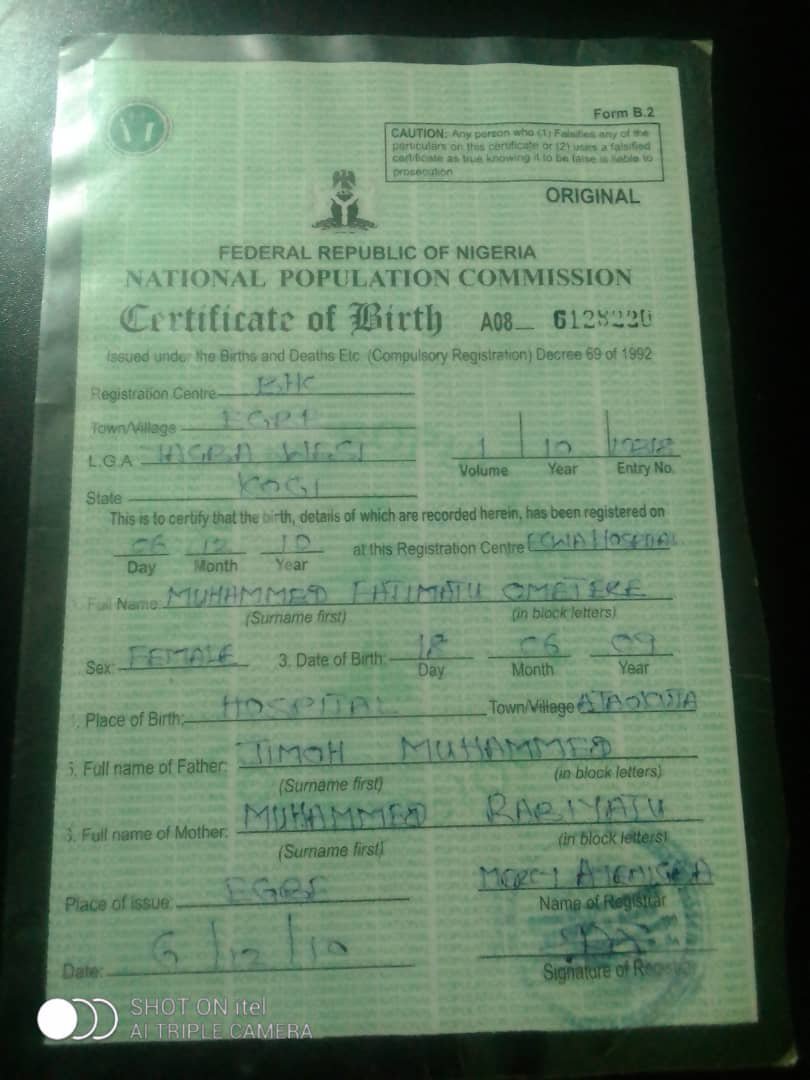 Form B.2
CAUTION: Any person who (1) Falsifies any of the
particulars on this certificate or (2) uses a falsified
certificate as true knowing it to be false is liable to
prosecution
ORIGINAL
FEDERAL REPUBLIC OF NIGERIA
NATIONAL POPULATION COMMISSION
Certificate of Birth A08 6128220
Issued under the Births and Deaths Etc (Compulsory Registration) Decree 69 of 1992
Registration Centre
Town/Village EGBE
L.G.A YAGBA WEST
1 10
Volume Year Entry No.
State KOGI
This is to certify that the birth, details of which are recorded herein, has been registered on
06 12 10 at this Registration Centre ECWA HOSPITAL
Day Month Year
Full Name: MUHAMMED FATIMATU OMETERE
(Surname first) (in block letters)
Sex: FEMALE 3. Date of Birth: 18 06 09
Day Month Year
. Place of Birth: HOSPITAL Town/Village
5. Full name of Father: JIMOH MUHAMMED
(Surname first) (in block letters)
3. Full name of Mother: MUHAMMED RABIYATU
(Surname first) (in block letters)
Place of issue: EGBE MERCY
Name of Registrar
Date: 6/12/10
Signature of Registrar
SHOT ON itel
AI TRIPLE CAMERA